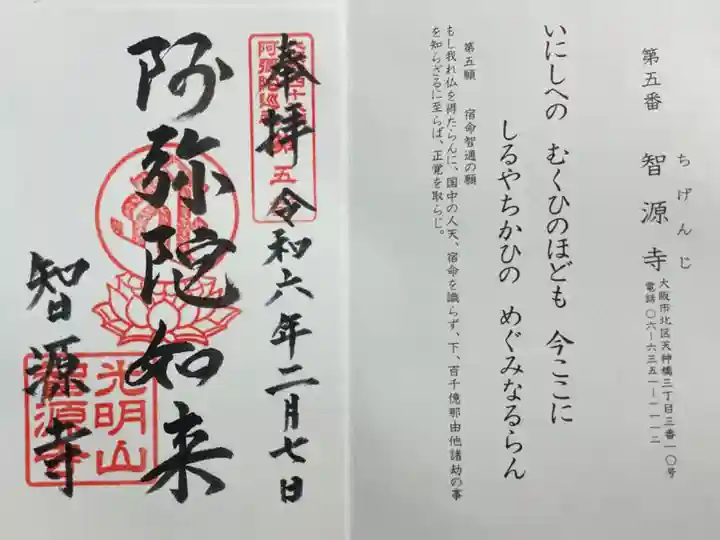 第五番 智源寺
ちげんじ
大阪市北区天神橋三丁目三番一〇号
電話〇六-六三五一-一一一二
いにしへの むくひのほども 今ここに
しるやちかひの めぐみなるらん
第五願 宿命智通の願
もし我れ仏を得たらんに、国中の人天、宿命を識らず、下、百千億那由他諸劫の事
を知らざるに至らば、正覚を取らじ。
奉拝 令和六年二月七日
阿弥陀如来
智源寺
光明山
智源寺